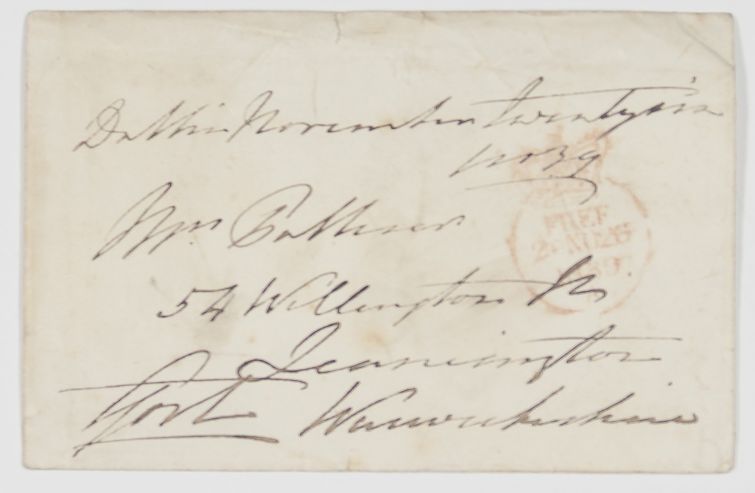 Dublin November twentysix
1839
Mrs
54 Wellington St
Leamington
Warwickshire
FREE
1839